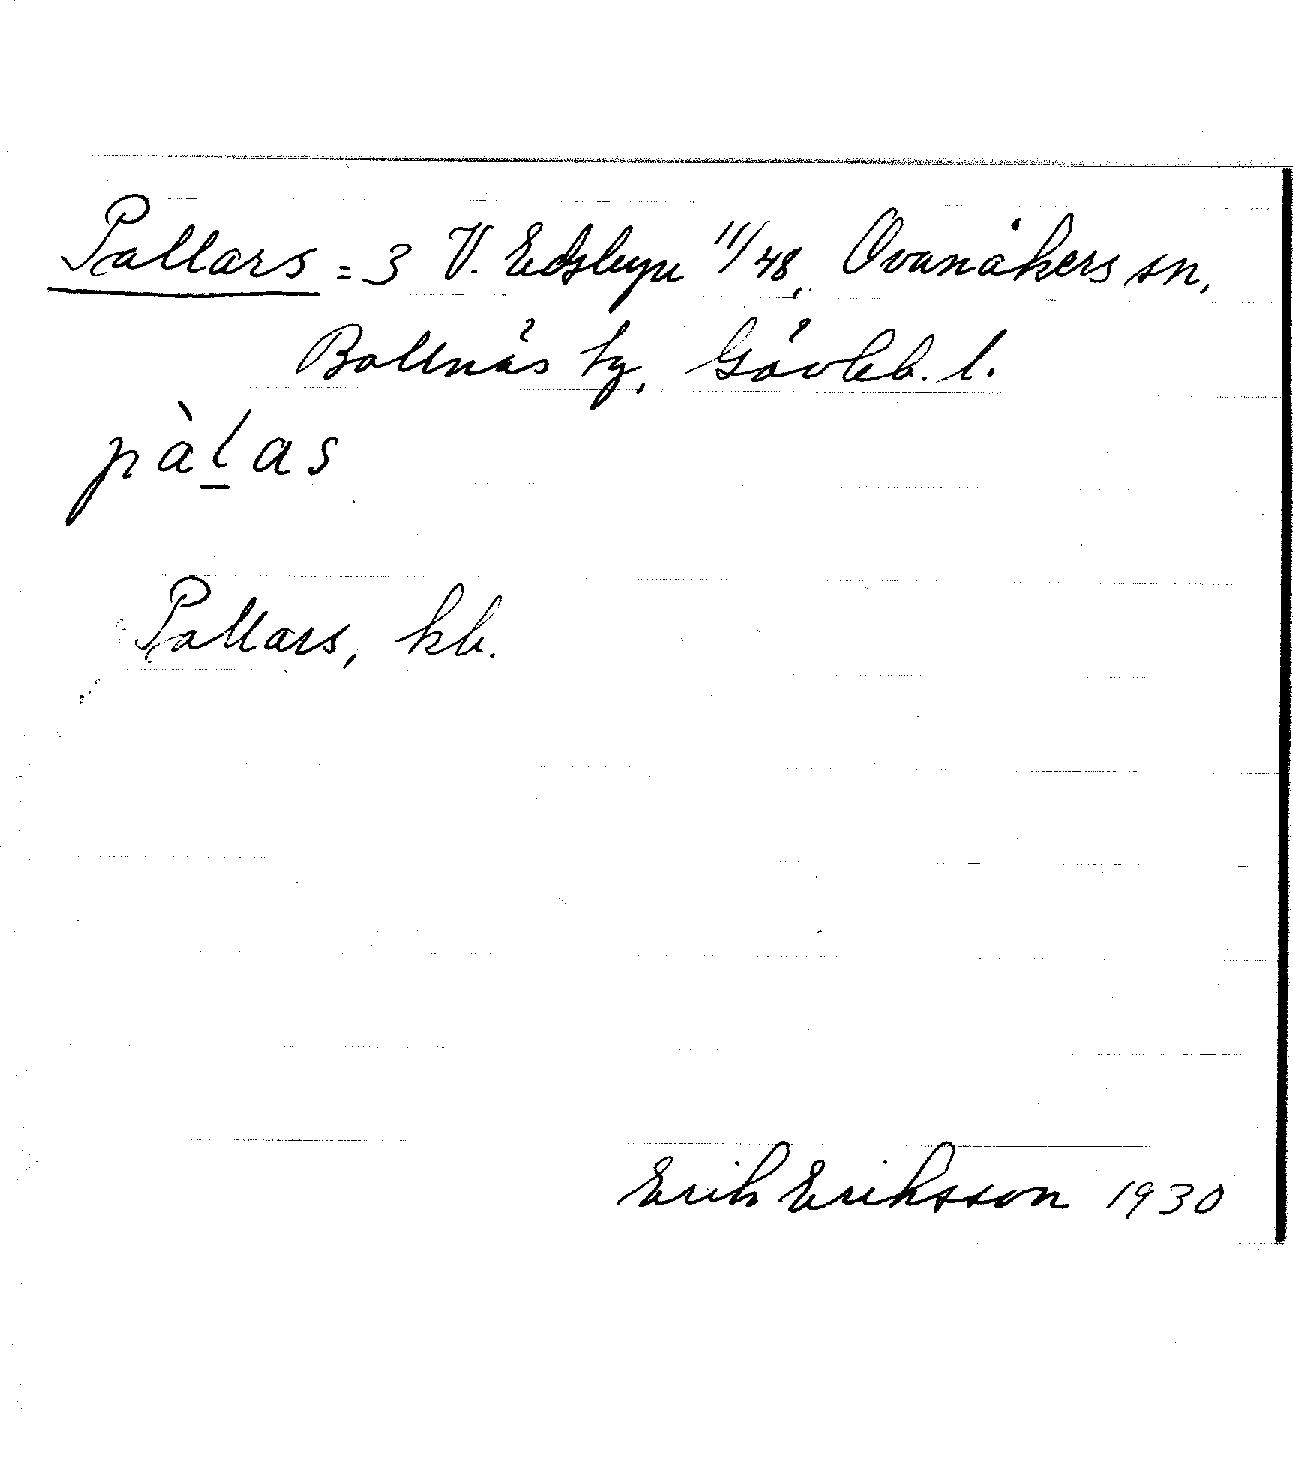 Pallars = 3 V. Edsbyn 11/48, Ovanåkers sn,
Bollnäs tg, Gävleb. l.
pàl̠as
Pallars, kb.
Erik Eriksson 1930